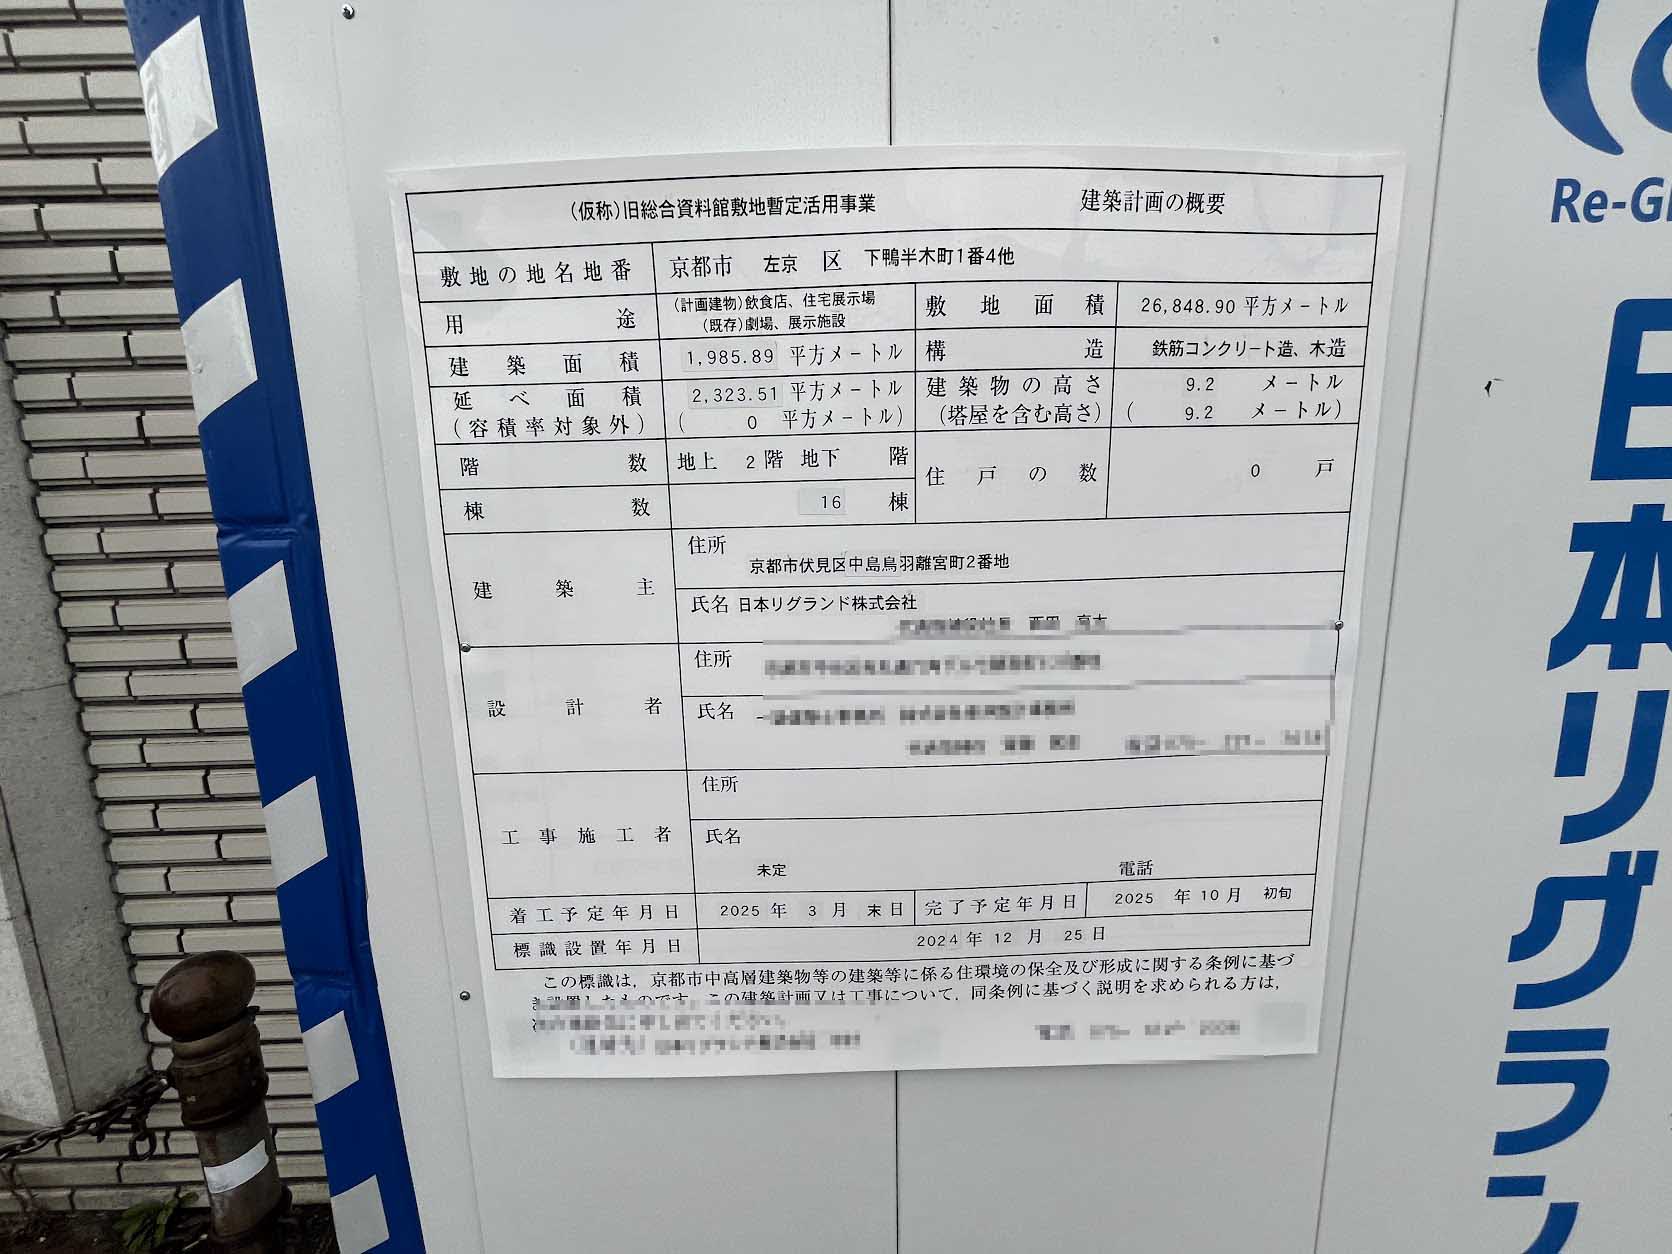 (仮称)旧総合資料館敷地暫定活用事業 建築計画の概要
敷地の地名地番 京都市 左京 区 下鴨半木町1番4他
用途 (計画建物)飲食店、住宅展示場 敷地面積 26,848.90 平方メートル
(既存)劇場、展示施設
建築面積 1,985.89 平方メートル 構造 鉄筋コンクリート造、木造
延べ面積 2,323.51 平方メートル 建築物の高さ 9.2 メートル
(容積率対象外) ( 0 平方メートル) (塔屋を含む高さ) ( 9.2 メートル)
階数 地上 2 階 地下 階 住戸の数 0 戸
棟数 16 棟
建築主 住所
京都市伏見区中島鳥羽離宮町2番地
氏名 日本リグランド株式会社
設計者 住所
氏名
工事施工者 住所
氏名
未定 電話
着工予定年月日 2025 年 3 月 末 日 完了予定年月日 2025 年 10 月 初旬
標識設置年月日 2024 年 12 月 25 日
この標識は、京都市中高層建築物等の建築等に係る住環境の保全及び形成に関する条例に基づ
き設置したものです。この建築計画又は工事について、同条例に基づく説明を求められる方は、
Re-G
日本リグラン